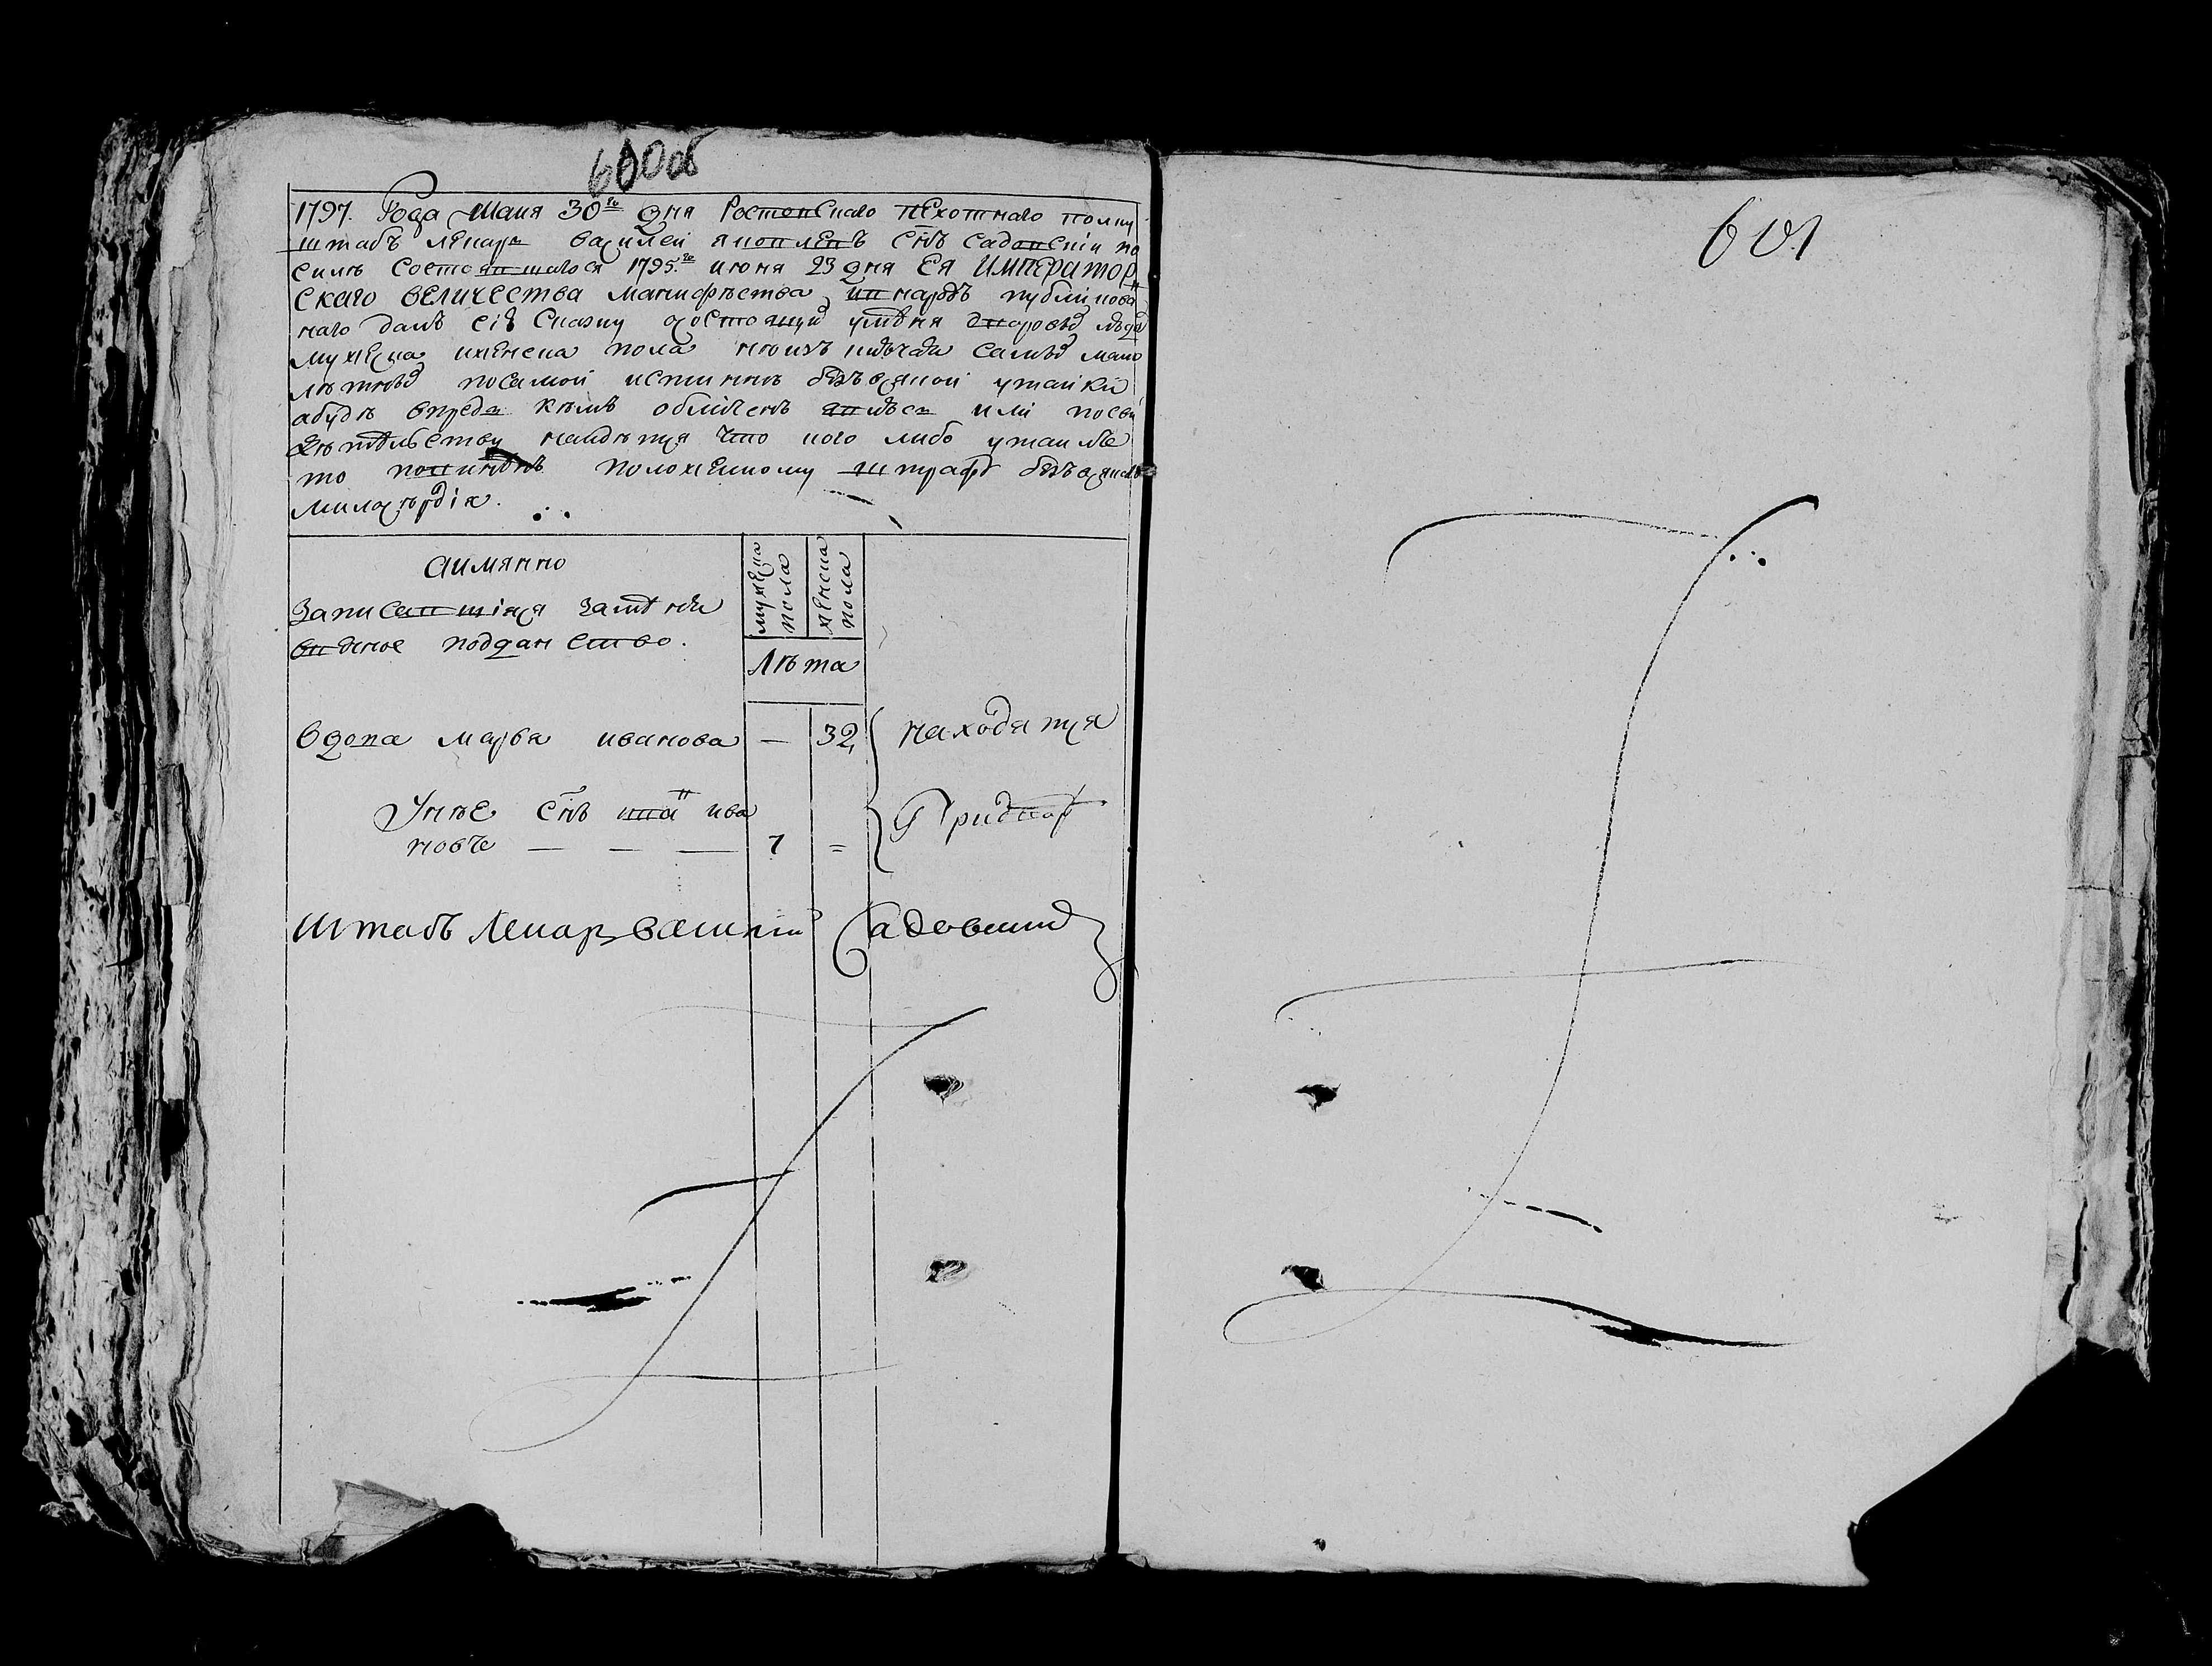 600 об
601
1797. Года Маия 30го дня Ростовскаго пехотнаго полку
штабъ лекарь василей яковлевъ снъ садовскiи по
силѣ состоявшагося 1795го июня 23 дня Ея Император
скаго величества манифѣста внародъ публикова
наго далъ сiю сказку осостоящихъ уменя дворовыхъ людѣ
мужеска иженска пола
лѣтныхъ посамой истиннѣ безъ всякой утайки
абудѣ впредь кѣмъ обличенъ явлюсь или посви
детелству найдѣтца что кого либо утаилъ
то повиненъ положенному штрафу безъ всякаго
милосѣрдiя.
аимянно
Записавшiяся замною
вѣчное подданство.
мужеска пола
женска пола
Лѣта
вдова марва иванова — 32
Унѣе снъ ива
новъ — — — 7 =
находятца
Придворѣ
Штабъ Лекарь Василiй Садовскиӣ